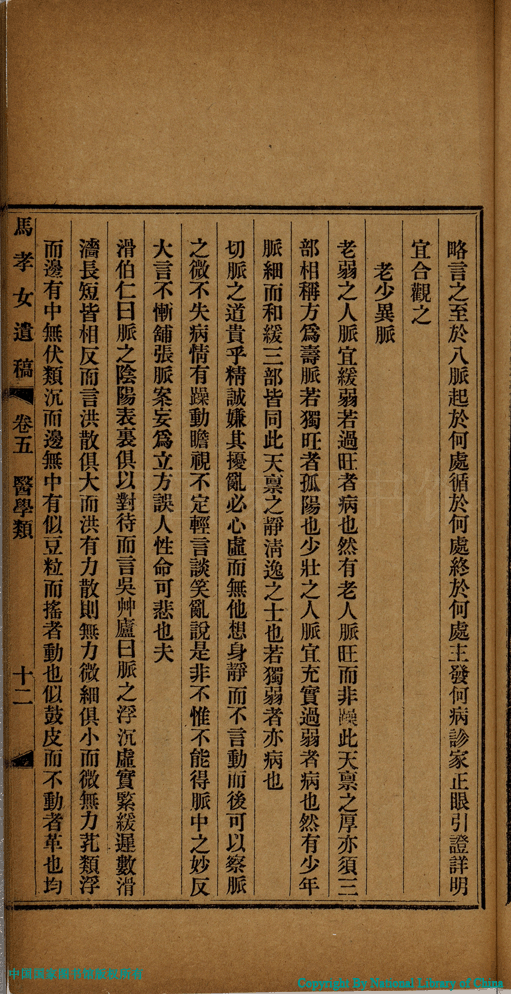 略言之至於八脈起於何處循於何處終於何處主發何病診家正眼引證詳明
宜合觀之
老少異脈
老弱之人脈宜緩弱若過旺者病也然有老人脈旺而非躁此天稟之厚亦須三
部相稱方爲壽脈若獨旺者孤陽也少壯之人脈宜充實過弱者病也然有少年
脈細而和緩三部皆同此天稟之靜淸逸之士也若獨弱者亦病也
切脈之道貴乎精誠嫌其擾亂必心虛而無他想身靜而不言動而後可以察脈
之微不失病情有躁動瞻視不定輕言談笑亂說是非不惟不能得脈中之妙反
大言不慚舖張脈案妄爲立方誤人性命可悲也夫
滑伯仁曰脈之陰陽表裏俱以對待而言吳艸廬曰脈之浮沉虛實緊緩遲數滑
濇長短皆相反而言洪散俱大而洪有力散則無力微細俱小而微無力芤類浮
而邊有中無伏類沉而邊無中有似豆粒而搖者動也似鼓皮而不動者革也均
馬孝女遺稿 卷五 醫學類 十二
中国国家图书馆版权所有
Copyright By National Library of China